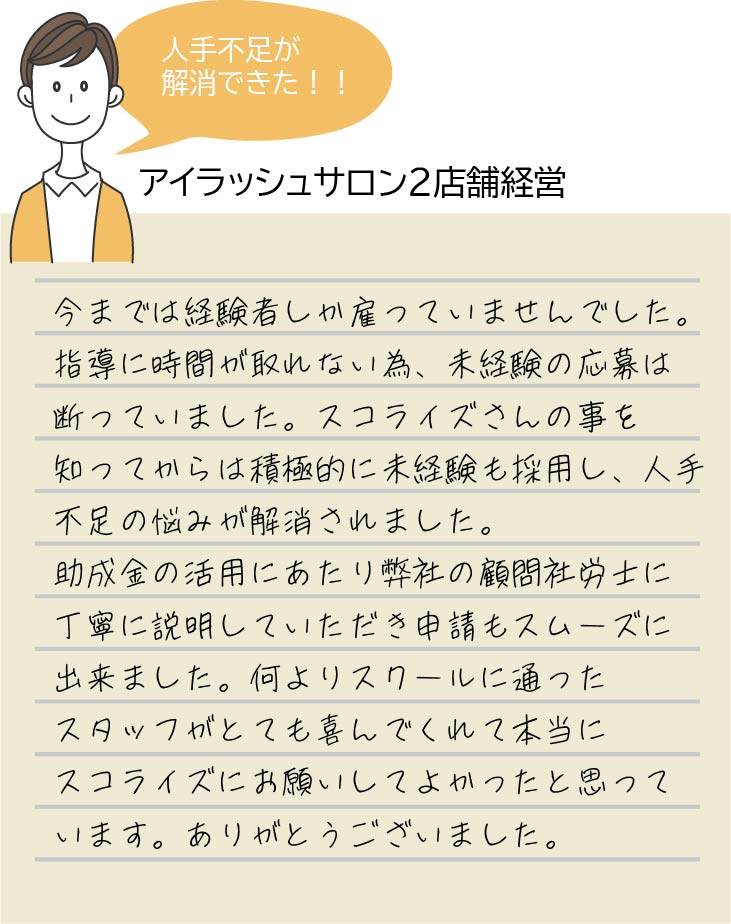 人手不足が
解消できた！！
アイラッシュサロン2店舗経営
今までは経験者しか雇っていませんでした。
指導に時間が取れない為、未経験の応募は
断っていました。スコライズさんの事を
知ってからは積極的に未経験も採用し、人手
不足の悩みが解消されました。
助成金の活用にあたり弊社の顧問社労士に
丁寧に説明していただき申請もスムーズに
出来ました。何よりスクールに通った
スタッフがとても喜んでくれて本当に
スコライズにお願いしてよかったと思って
います。ありがとうございました。